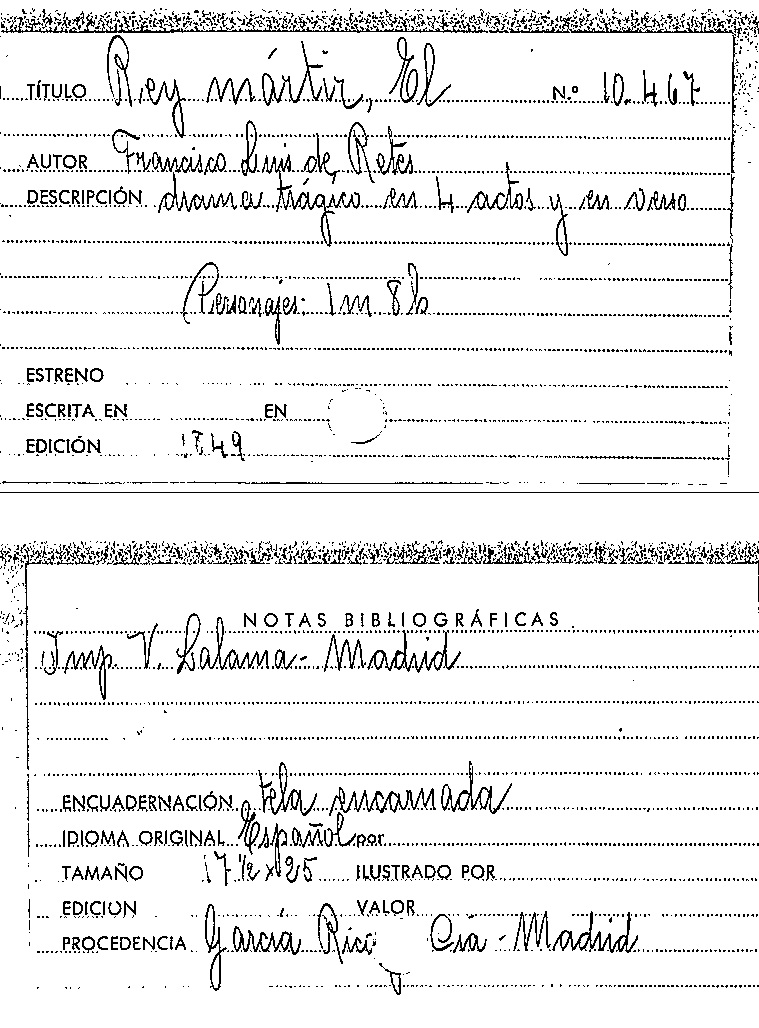 TÍTULO Rey mártir, El N.º 10.467
AUTOR Francisco Luis de Retes
DESCRIPCIÓN drama trágico en 4 actos y en verso
Personajes: 1 m 8 h
ESTRENO
ESCRITA EN EN
EDICIÓN 1849
NOTAS BIBLIOGRÁFICAS
Imp. V. Lalama - Madrid
ENCUADERNACIÓN tela encarnada
IDIOMA ORIGINAL Español por
TAMAÑO 17 1/2 x 25 ILUSTRADO POR
EDICIÓN VALOR
PROCEDENCIA García Rico y Cía - Madrid